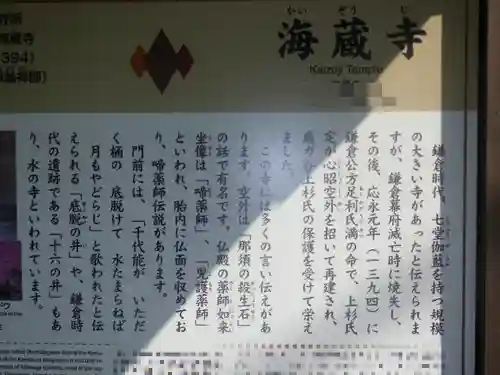 海蔵寺
かいぞうじ
Kaizoji Temple
鎌倉時代、七堂伽藍を持つ規模
の大きい寺があったと伝えられま
すが、鎌倉幕府滅亡時に焼失し、
その後、応永元年（一三九四）に
鎌倉公方足利氏満の命で、上杉氏
定が心昭空外を招いて再建され、
扇ガ谷上杉氏の保護を受けて栄え
ました。
この寺には多くの言い伝えがあ
ります。空外は「那須の殺生石」
の話で有名です。仏殿の薬師如来
坐像は「啼薬師」、「児護薬師」
といわれ、胎内に仏面を収めてお
り、啼薬師伝説があります。
門前には、「千代能が　いただ
く桶の　底脱けて　水たまらねば
月もやどらじ」と歌われたと伝
えられる「底脱の井」や、鎌倉時
代の遺跡である「十六の井」もあ
り、水の寺といわれています。
蔵寺
394）